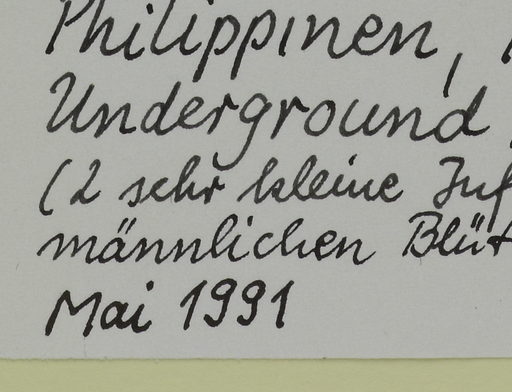 Philippinen,
Underground
(2 sehr kleine
männlichen
Mai 1991